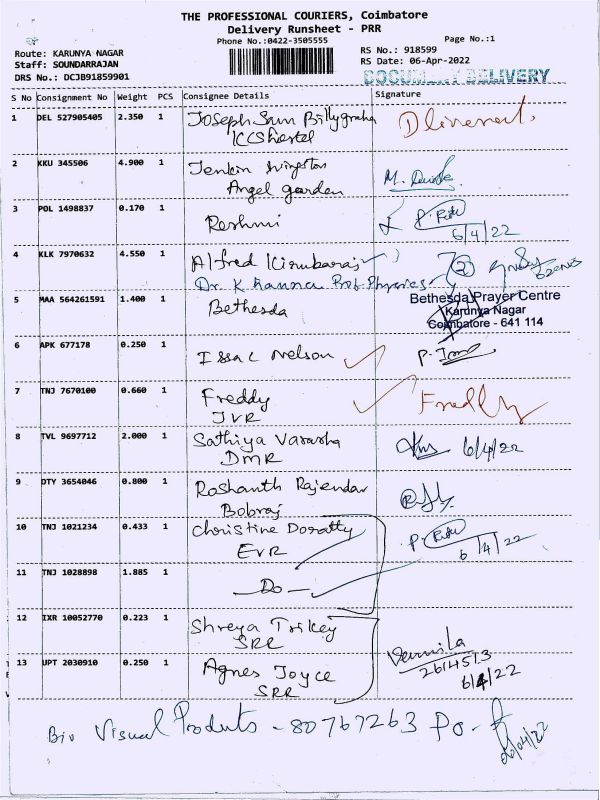 THE PROFESSIONAL COURIERS, Coimbatore
Delivery Runsheet - PRR
Phone No.:0422-3505555
Page No.:1
Route: KARUNYA NAGAR
Staff: SOUNDARRAJAN
DRS No.: DCJB91859901
RS No.: 918599
RS Date: 06-Apr-2022
DOCUMENT DELIVERY
S No Consignment No Weight PCS Consignee Details Signature
1 DEL 527905405 2.350 1 Joseph Sam Billygraha
ICCS hostel
2 KKU 345506 4.900 1 Jenkin
Angel garden
3 POL 1498837 0.170 1 Reshmi
6/4/22
4 KLK 7970632 4.550 1 Alfred Kirubaraj
Dr. K. Ranna Prof. Physics
5 MAA 564261591 1.400 1 Bethesda
Bethesda Prayer Centre
Karunya Nagar
Coimbatore - 641 114
6 APK 677178 0.250 1 Issac Nelson
7 TNJ 7670100 0.660 1 Freddy Fredly
JVR
8 TVL 9697712 2.000 1 Sathiya Varasha 6/4/22
DMR
9 DTY 3654046 0.800 1 Roshanth Rajendar
Bobraj
10 TNJ 1021234 0.433 1 Christine Doratty
EVR 6/4/22
11 TNJ 1028898 1.885 1 -Do-
12 IXR 10052770 0.223 1 Shreya Trikey
SRR
13 UPT 2030910 0.250 1 Agnes Joyce
SRR
2614513
6/4/22
Visual Produts - 80767263 Po -
06/04/22